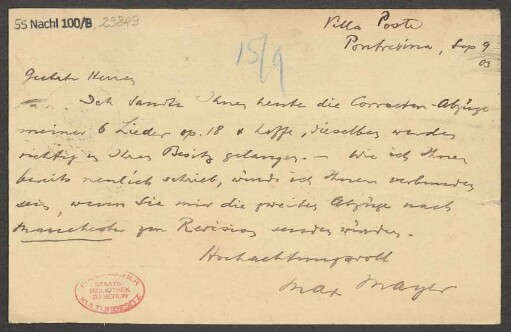 55 Nachl 100/B, 29849
Villa Poste
Pontresina, Sep 9
03
15/9
Geehrte Herren
Ich sandte Ihnen heute die Correctur-Abzüge
meiner 6 Lieder op. 18 & hoffe, dieselben werden
richtig in Ihren Besitz gelangen. — Wie ich Ihnen
bereits neulich schrieb, würde ich Ihnen verbunden
sein, wenn Sie mir die zweiten Abzüge nach
Manchester zur Revision senden würden.
Hochachtungsvoll
Max Mayer
STAATS-
BIBLIOTHEK
ZU BERLIN
KULTURBESITZ